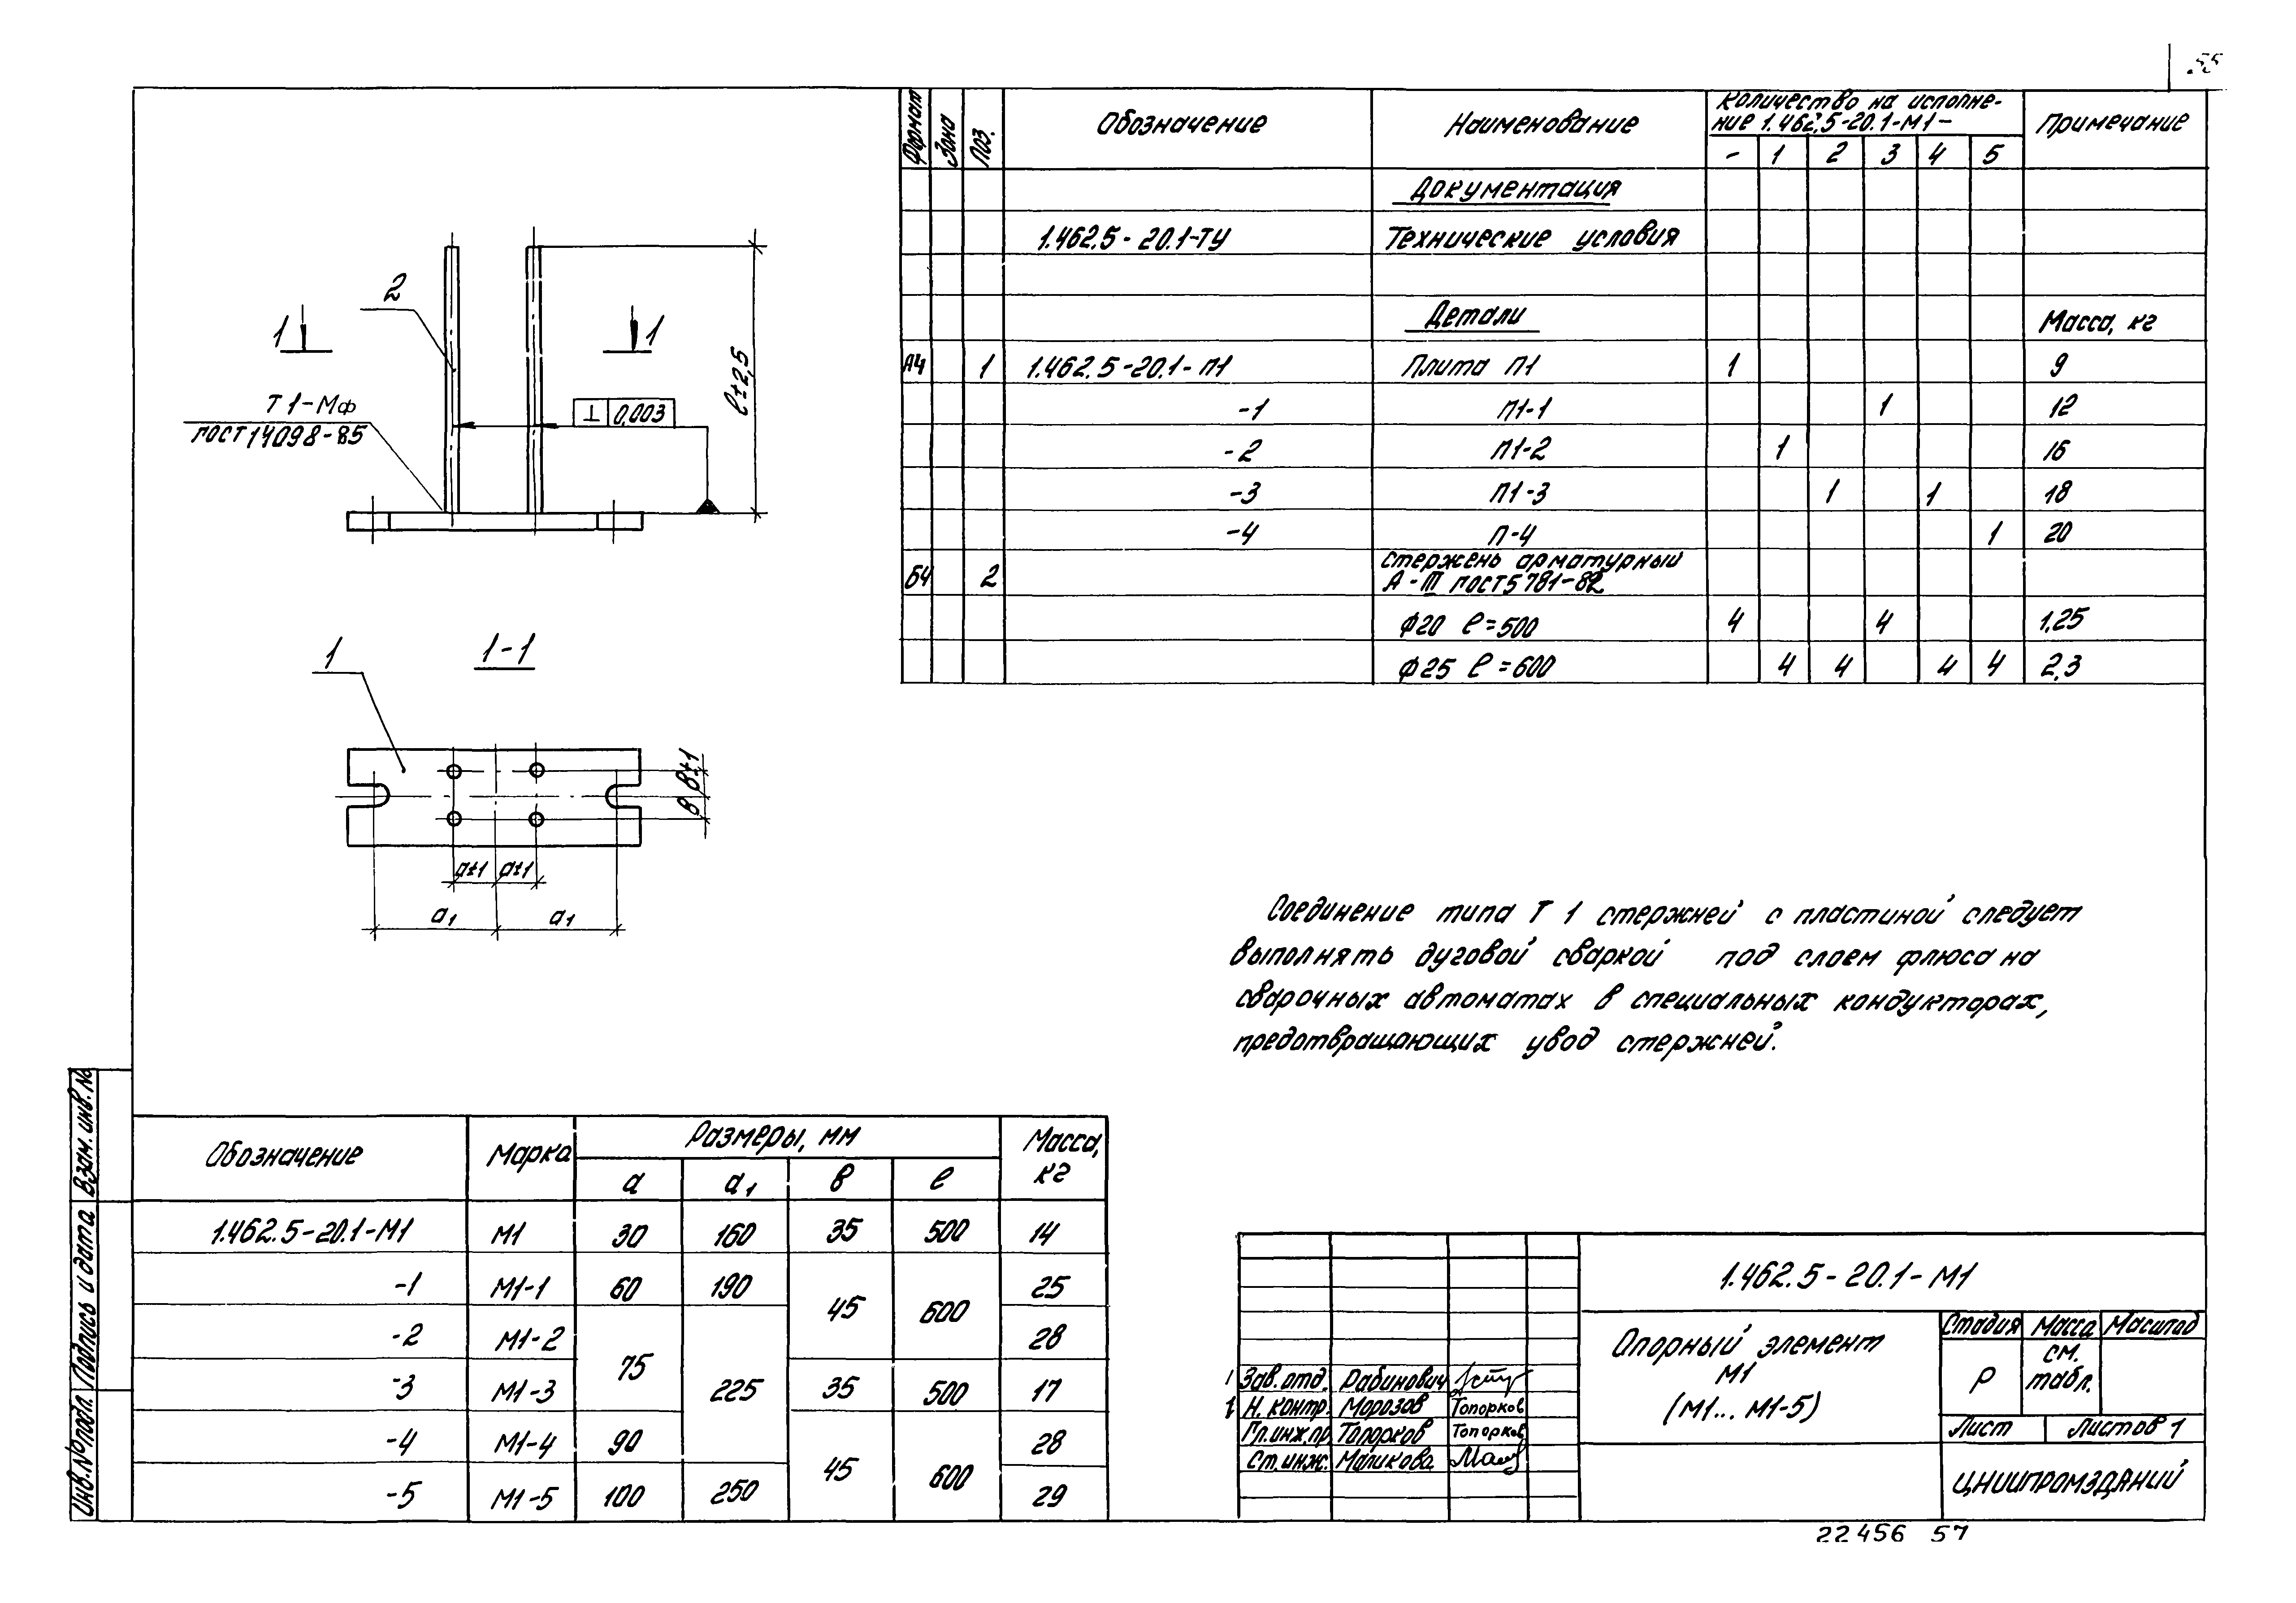 55
Формат Зона Поз. Обозначение Наименование Количество на исполне-
ние 1.462.5-20.1-М1- Примечание
- 1 2 3 4 5
Документация
1.462.5-20.1-ТУ Технические условия
Детали Масса, кг
А4 1 1.462.5-20.1-П1 Плита П1 1 9
-1 П1-1 1 12
-2 П1-2 1 16
-3 П1-3 1 1 18
-4 П-4 1 20
Б4 2 Стержень арматурный
А-III ГОСТ 5781-82
ф20 ℓ=500 4 4 1,25
ф25 ℓ=600 4 4 4 4 2,3
2
1 1
Т1-Мф
ГОСТ 14098-85
⊥ 0,003
ℓ±2,5
1
1-1
в±1
в
а±1 а±1
а₁ а₁
Соединение типа Т 1 стержней с пластиной следует
выполнять дуговой сваркой под слоем флюса на
сварочных автоматах в специальных кондукторах,
предотвращающих увод стержней.
Обозначение Марка Размеры, мм Масса,
кг
а а₁ в ℓ
1.462.5-20.1-М1 М1 30 160 35 500 14
-1 М1-1 60 190 45 600 25
-2 М1-2 75 225 28
-3 М1-3 35 500 17
-4 М1-4 90 45 600 28
-5 М1-5 100 250 29
Взам. инв. №
Подпись и дата
Инв. № подл.
1.462.5-20.1-М1
Опорный элемент
М1
(М1... М1-5)
Стадия Масса Масштаб
Р см.
табл.
Лист Листов 1
ЦНИИПРОМЗДАНИЙ
Зав. отд. Рабинович
Н. контр. Морозов Топорков
Гл.инж.пр Топорков Топорков
Ст. инж. Маликова
22456 57